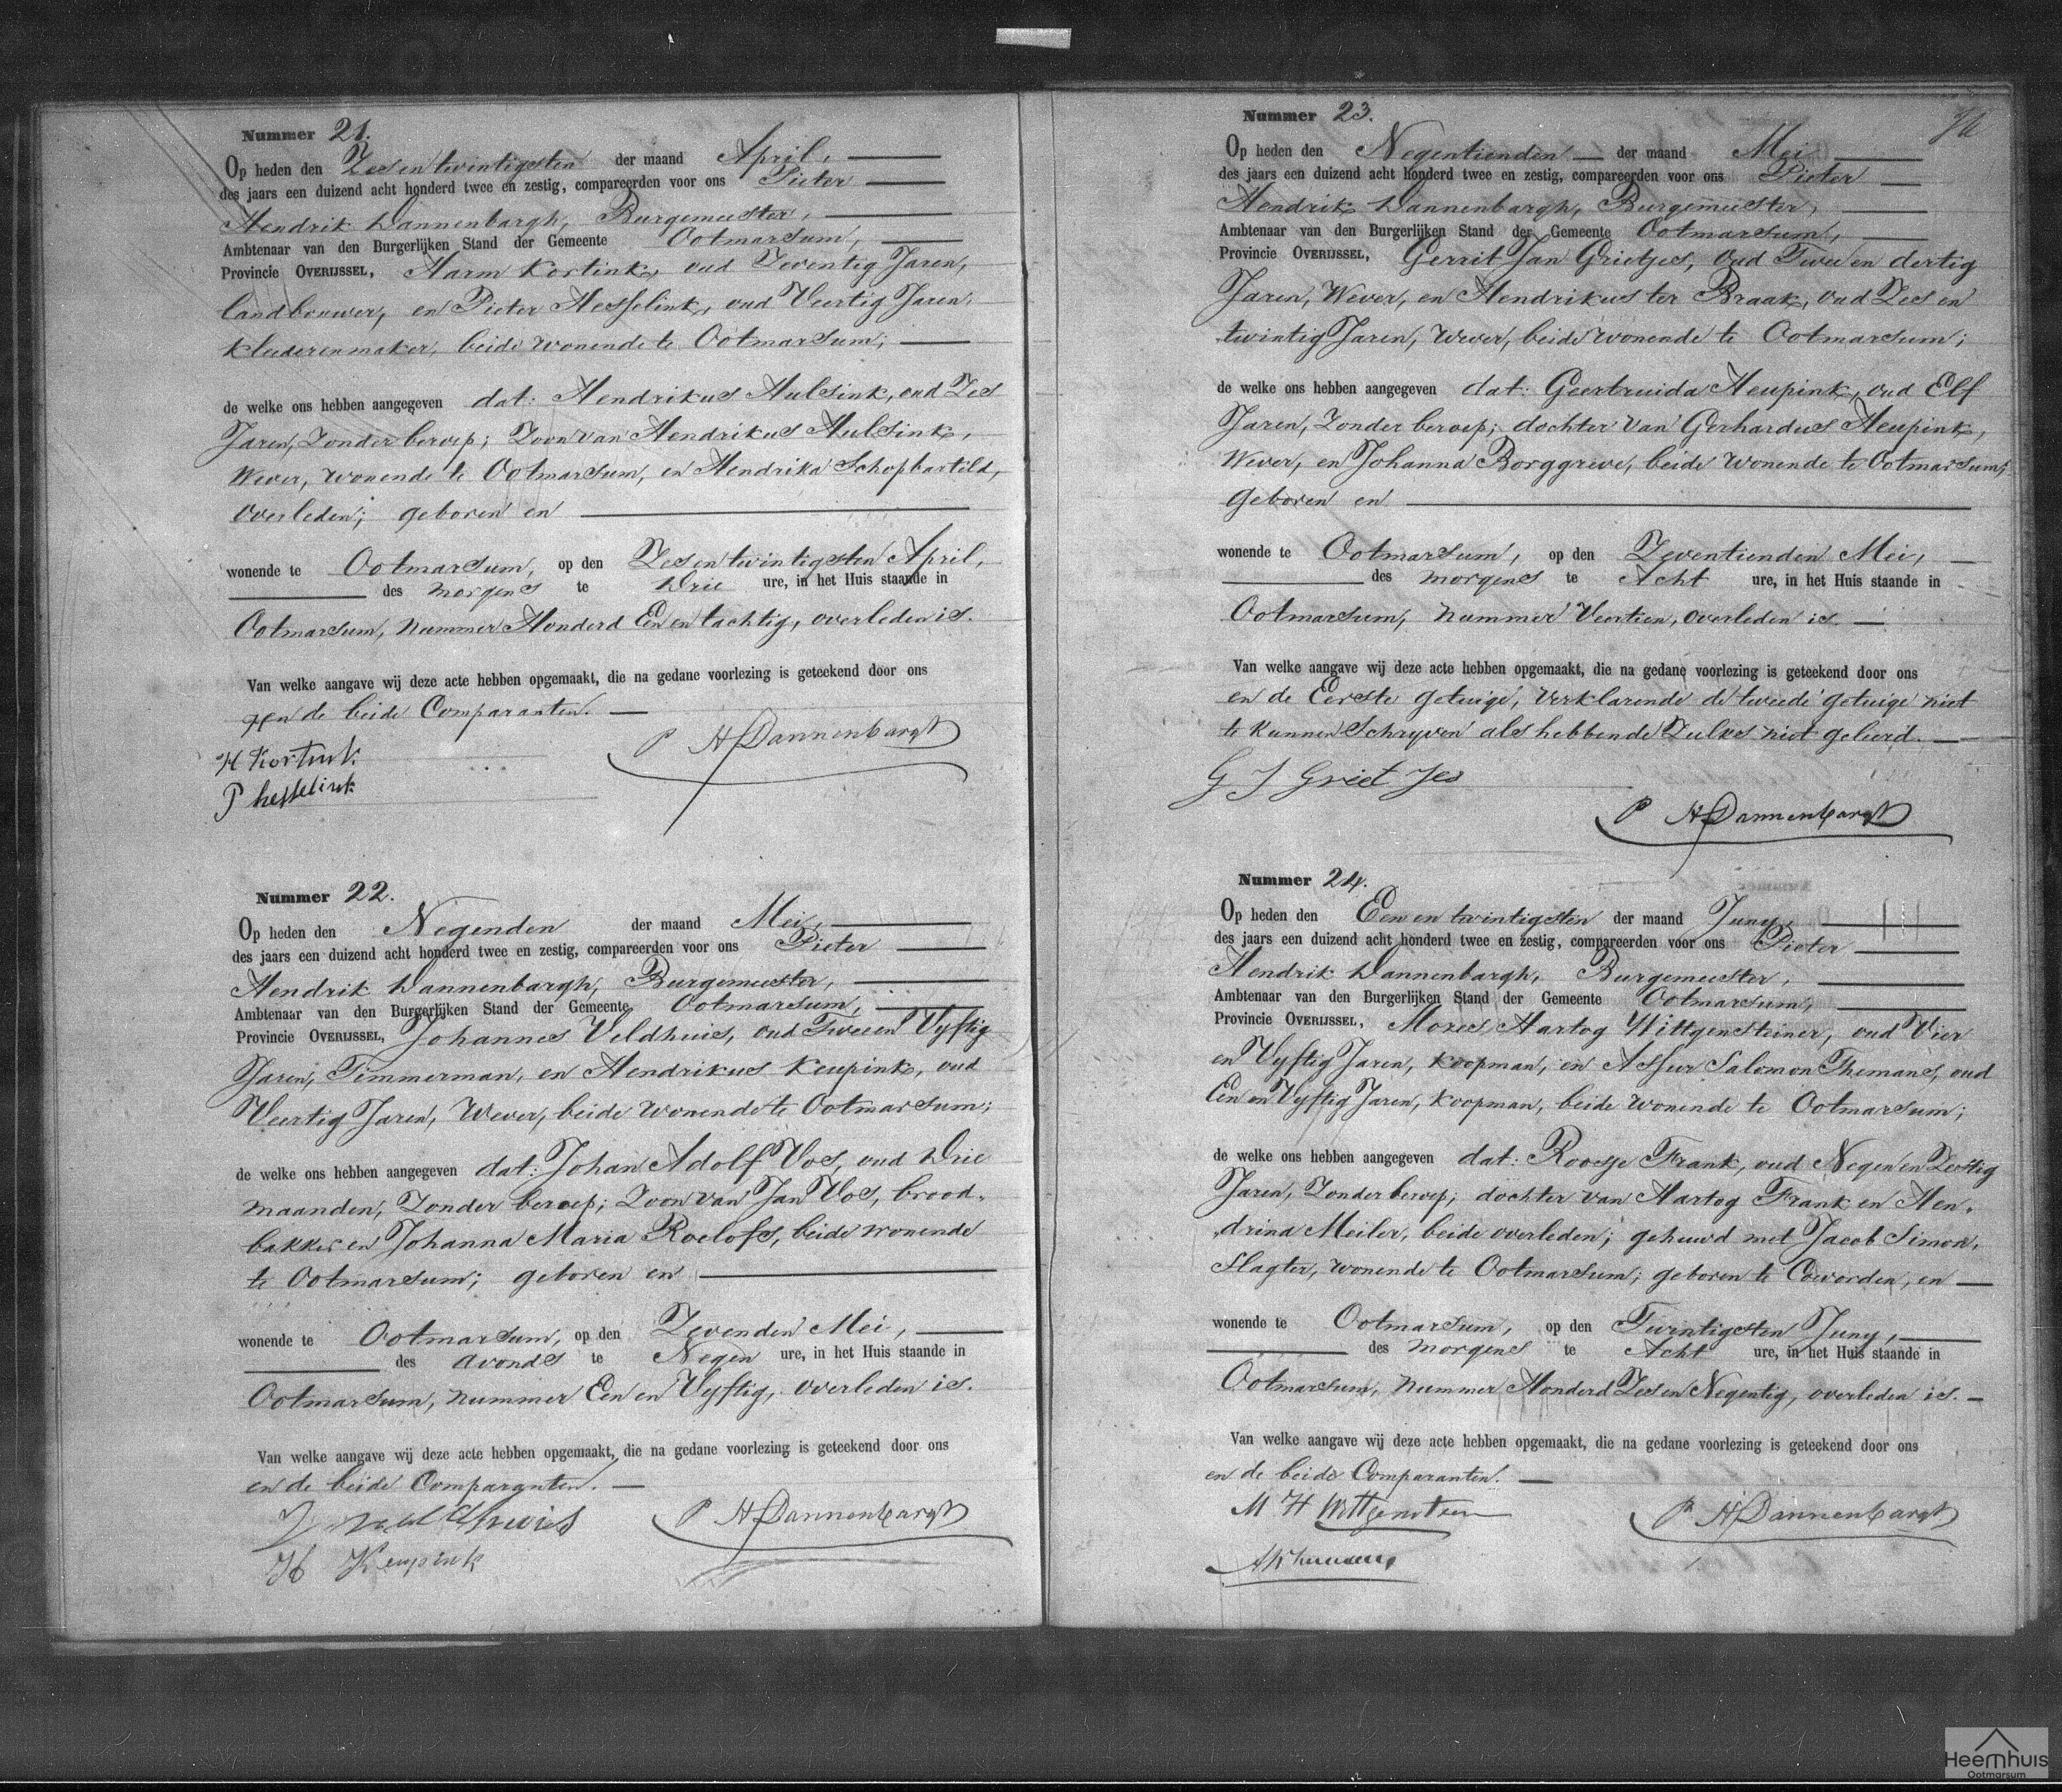 Nummer 21.
Op heden den Zesentwintigsten der maand April,
des jaars een duizend acht honderd twee en zestig, compareerden voor ons Pieter
Hendrik Dannenbargh, Burgemeester,
Ambtenaar van den Burgerlijken Stand der Gemeente Ootmarsum,
Provincie OVERIJSSEL, Harm Kortink, oud Zeventig Jaren,
landbouwer, en Pieter Hesselink, oud Veertig Jaren,
kleederenmaker, beide wonende te Ootmarsum;
de welke ons hebben aangegeven dat: Hendrikus Hulsink, oud Zes
Jaren, Zonder beroep; Zoon van Hendrikus Hulsink,
Wever, wonende te Ootmarsum, en Hendrika Schopbarteld,
overleden; geboren en
wonende te Ootmarsum, op den Zesentwintigsten April,
des morgens te Drie ure, in het Huis staande in
Ootmarsum, nummer Honderd Een en tachtig, overleden is.
Van welke aangave wij deze acte hebben opgemaakt, die na gedane voorlezing is geteekend door ons
en de beide Comparanten.
H Kortink
P A Dannenbargh
P hesselink
Nummer 22.
Op heden den Negenden der maand Mei,
des jaars een duizend acht honderd twee en zestig, compareerden voor ons Pieter
Hendrik Dannenbargh, Burgemeester,
Ambtenaar van den Burgerlijken Stand der Gemeente Ootmarsum,
Provincie OVERIJSSEL, Johannes Veldhuis, oud Twee en Vyftig
Jaren, Timmerman, en Hendrikus Keupink, oud
Veertig Jaren, Wever, beide wonende te Ootmarsum;
de welke ons hebben aangegeven dat: Johan Adolf Vos, oud Drie
maanden, Zonder beroep; Zoon van Jan Vos, brood-
bakker en Johanna Maria Roelofs, beide wonende
te Ootmarsum; geboren en
wonende te Ootmarsum, op den Zevenden Mei,
des avonds te Negen ure, in het Huis staande in
Ootmarsum, nummer Een en Vyftig, overleden is.
Van welke aangave wij deze acte hebben opgemaakt, die na gedane voorlezing is geteekend door ons
en de beide Comparanten.
J Veldhuis
P H Dannenbargh
H Keupink
Nummer 23.
Op heden den Negentienden der maand Mei
des jaars een duizend acht honderd twee en zestig, compareerden voor ons Pieter
Hendrik Dannenbargh, Burgemeester,
Ambtenaar van den Burgerlijken Stand der Gemeente Ootmarsum,
Provincie OVERIJSSEL, Gerrit Jan Grietjes, oud Twee en dertig
Jaren, Wever, en Hendrikus ter Braak, oud Zes en
twintig Jaren, Wever, beide wonende te Ootmarsum;
de welke ons hebben aangegeven dat: Geertruida Heupink, oud Elf
Jaren, Zonder beroep; dochter van Gerhardus Heupink,
Wever, en Johanna Borggreve, beide wonende te Ootmarsum;
geboren en
wonende te Ootmarsum, op den Zeventienden Mei,
des morgens te Acht ure, in het Huis staande in
Ootmarsum, nummer Veertien, overleden is.
Van welke aangave wij deze acte hebben opgemaakt, die na gedane voorlezing is geteekend door ons
en de Eerste getuige, verklarende de tweede getuige niet
te kunnen Schryven als hebbende Zulks niet geleerd.
G J Grietjes
P H Dannenbargh
Nummer 24.
Op heden den Een en twintigsten der maand Juny,
des jaars een duizend acht honderd twee en zestig, compareerden voor ons Pieter
Hendrik Dannenbargh, Burgemeester,
Ambtenaar van den Burgerlijken Stand der Gemeente Ootmarsum,
Provincie OVERIJSSEL, Mozes Hartog Wittgensteiner, oud Vier
en Vyftig Jaren, Koopman, en Assur Salomon Themans, oud
Een en Vyftig Jaren, Koopman, beide wonende te Ootmarsum;
de welke ons hebben aangegeven dat: Roosje Frank, oud Negen en Zestig
Jaren, Zonder beroep; dochter van Hartog Frank en Hen-
drina Meiler, beide overleden; gehuwd met Jacob Simon,
Slagter, wonende te Ootmarsum; geboren te Coevorden, en
wonende te Ootmarsum, op den Twintigsten Juny,
des morgens te Acht ure, in het Huis staande in
Ootmarsum, nummer Honderd Zes en Negentig, overleden is.
Van welke aangave wij deze acte hebben opgemaakt, die na gedane voorlezing is geteekend door ons
en de beide Comparanten.
M H Wittgenstein
P H Dannenbargh
Heemhuis
Ootmarsum